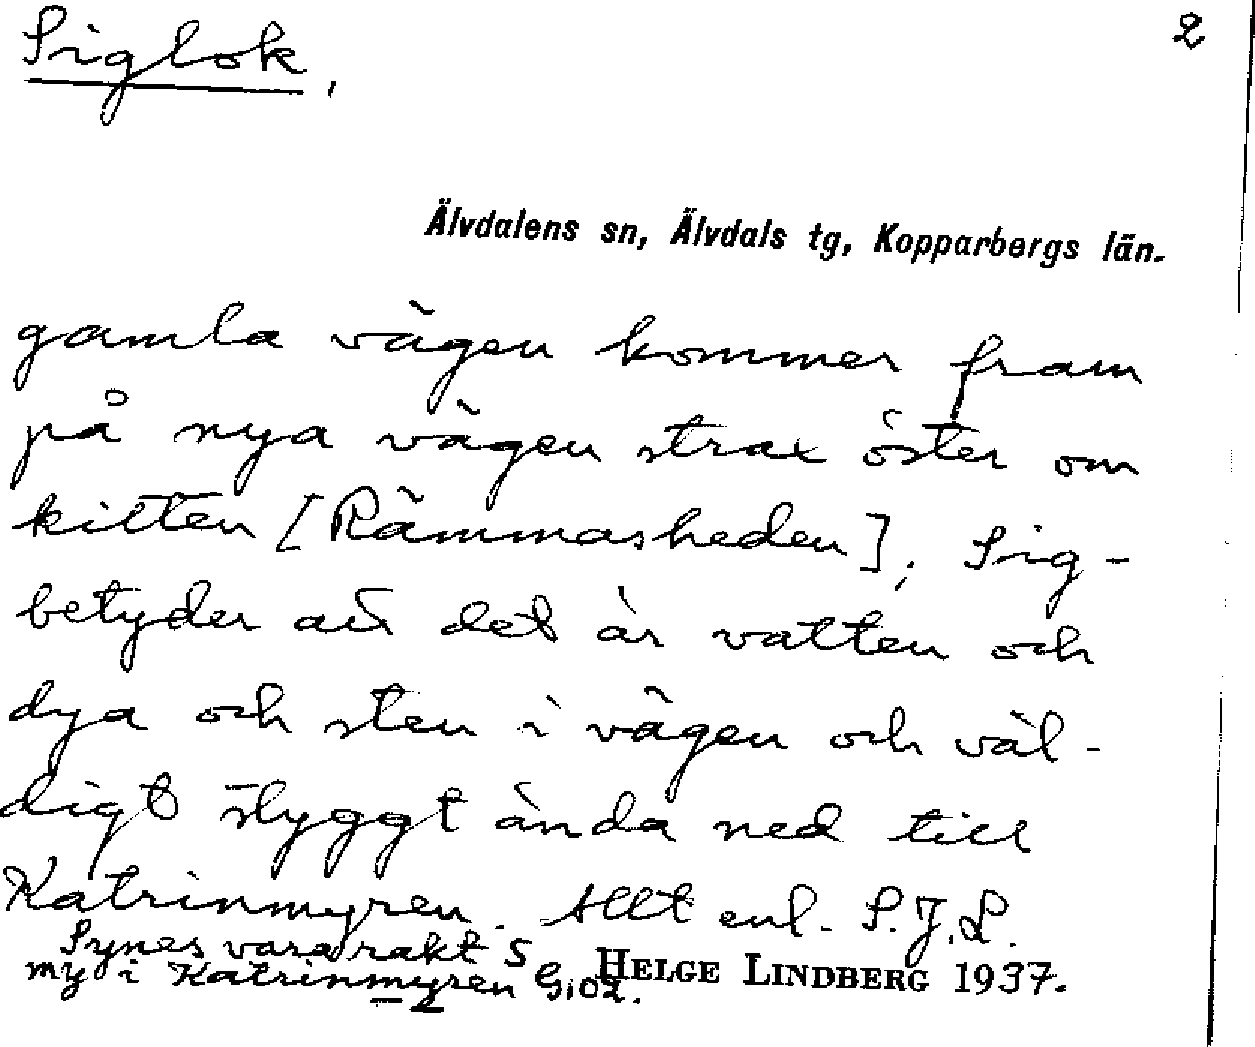 Siglok,
2
Älvdalens sn, Älvdals tg, Kopparbergs län.
gamla vägen kommer fram
på nya vägen strax öster om
kitten [Rämmasheden]; Sig-
betyder att det är vatten och
dya och sten i vägen och väl-
digt styggt ända ned till
Katrinmyren. Allt enl. S.J.L.
Synes vara rakt S
my i Katrinmyren Gi02.
HELGE LINDBERG 1937.